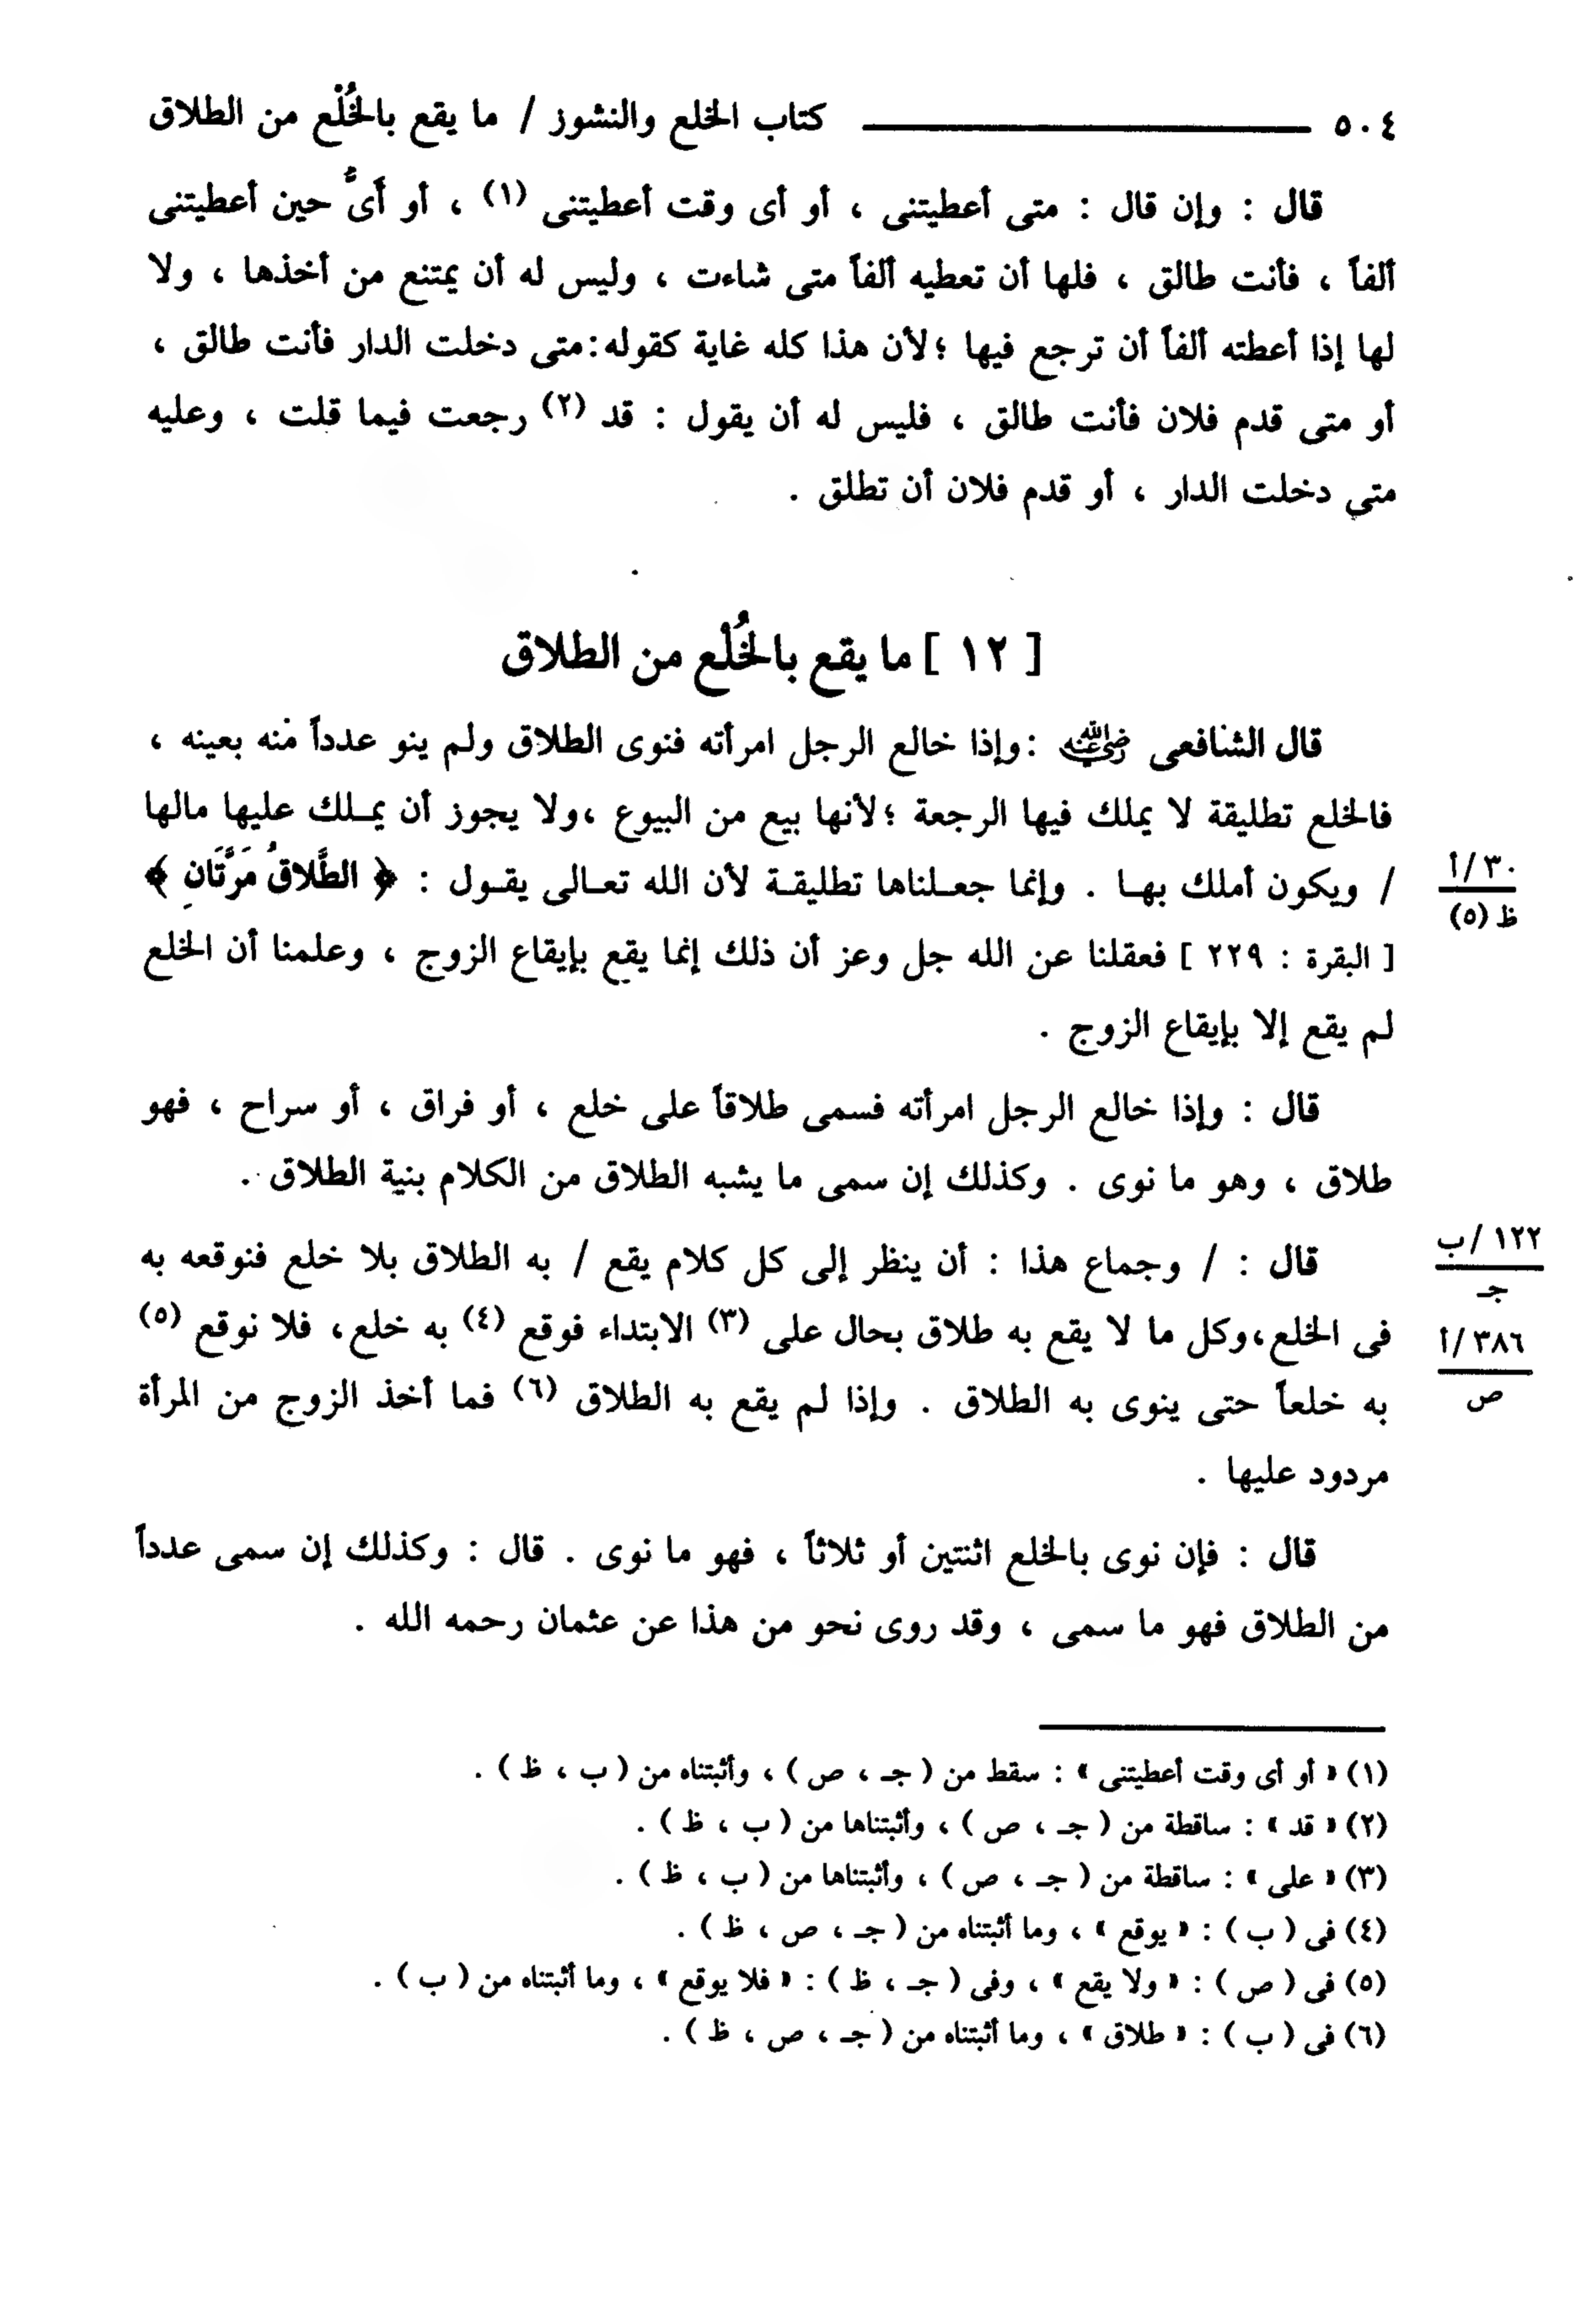 ٥٠٤ كتاب الخلع والنشوز / ما يقع بالخُلْع من الطلاق
قال : وإن قال : متى أعطيتنى ، أو أى وقت أعطيتنى (١) ، أو أَىُّ حين أعطيتنى
ألفاً ، فأنت طالق ، فلها أن تعطيه ألفاً متى شاءت ، وليس له أن يمتنع من أخذها ، ولا
لها إذا أعطته ألفاً أن ترجع فيها ؛لأن هذا كله غاية كقوله:متى دخلت الدار فأنت طالق ،
أو متى قدم فلان فأنت طالق ، فليس له أن يقول : قد (٢) رجعت فيما قلت ، وعليه
متى دخلت الدار ، أو قدم فلان أن تطلق .
[ ١٢ ] ما يقع بالخُلْع من الطلاق
قال الشافعى رضي الله عنه :وإذا خالع الرجل امرأته فنوى الطلاق ولم ينو عدداً منه بعينه ،
فالخلع تطليقة لا يملك فيها الرجعة ؛لأنها بيع من البيوع ،ولا يجوز أن يمـلك عليها مالها
/ ويكون أملك بهـا . وإنما جعـلناها تطليقـة لأن الله تعـالى يقـول : ﴿ الطَّلاقُ مَرَّتَانِ ﴾
٣٠/أ
ظ (٥)
[ البقرة : ٢٢٩ ] فعقلنا عن الله جل وعز أن ذلك إنما يقع بإيقاع الزوج ، وعلمنا أن الخلع
لم يقع إلا بإيقاع الزوج .
قال : وإذا خالع الرجل امرأته فسمى طلاقاً على خلع ، أو فراق ، أو سراح ، فهو
طلاق ، وهو ما نوى . وكذلك إن سمى ما يشبه الطلاق من الكلام بنية الطلاق .
قال : / وجماع هذا : أن ينظر إلى كل كلام يقع / به الطلاق بلا خلع فنوقعه به
١٢٢/ب
جـ
فى الخلع،وكل ما لا يقع به طلاق بحال على (٣) الابتداء فوقع (٤) به خلع، فلا نوقع (٥)
٣٨٦/أ
ص
به خلعاً حتى ينوى به الطلاق . وإذا لم يقع به الطلاق (٦) فما أخذ الزوج من المرأة
مردود عليها .
قال : فإن نوى بالخلع اثنتين أو ثلاثاً ، فهو ما نوى . قال : وكذلك إن سمى عدداً
من الطلاق فهو ما سمى ، وقد روى نحو من هذا عن عثمان رحمه الله .
(١) « أو أى وقت أعطيتنى » : سقط من ( جـ ، ص ) ، وأثبتناه من ( ب ، ظ ) .
(٢) « قد » : ساقطة من ( جـ ، ص ) ، وأثبتناها من ( ب ، ظ ) .
(٣) « على » : ساقطة من ( جـ ، ص ) ، وأثبتناها من ( ب ، ظ ) .
(٤) فى ( ب ) : « يوقع » ، وما أثبتناه من ( جـ ، ص ، ظ ) .
(٥) فى ( ص ) : « ولا يقع » ، وفى ( جـ ، ظ ) : « فلا يوقع » ، وما أثبتناه من ( ب ) .
(٦) فى ( ب ) : « طلاق » ، وما أثبتناه من ( جـ ، ص ، ظ ) .